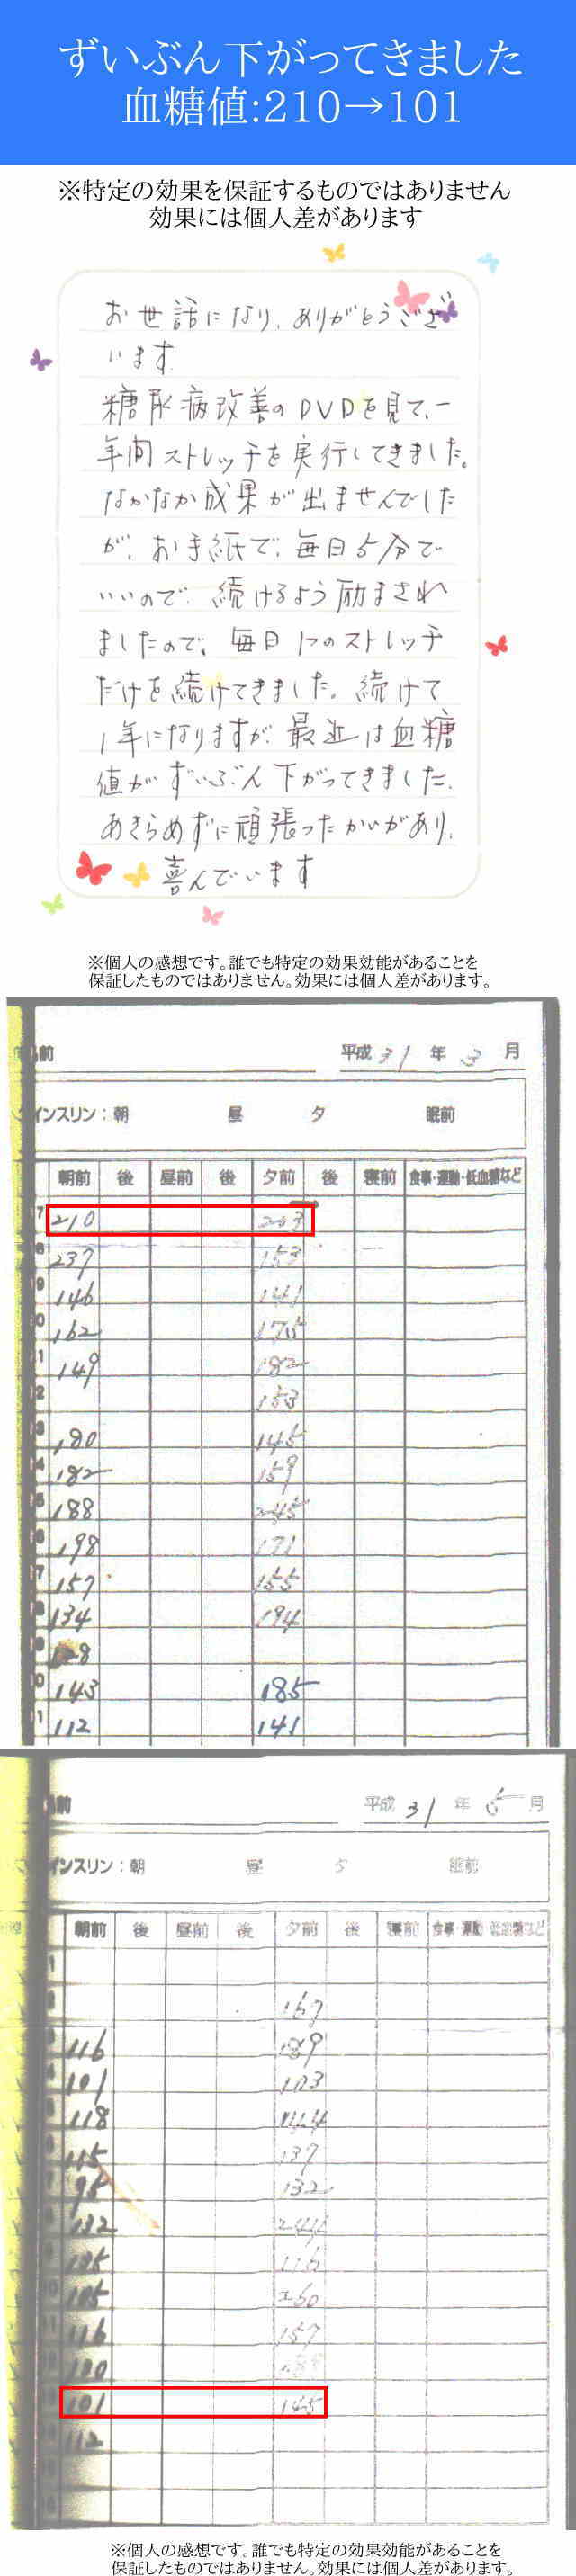 ずいぶん下がってきました
血糖値:210→101
※特定の効果を保証するものではありません
効果には個人差があります
お世話になり、ありがとうござ
います
糖尿病改善のDVDを見て、一
年間ストレッチを実行してきました。
なかなか成果が出ませんでした
が、お手紙で、毎日5分で
いいので、続けるよう励まされ
ましたので、毎日1つのストレッチ
だけを続けてきました。続けて
1年になりますが、最近は血糖
値がずいぶん下がってきました。
あきらめずに頑張ったかいがあり、
喜んでいます
※個人の感想です。誰でも特定の効果効能があることを
保証したものではありません。効果には個人差があります。
前 平成 31 年 3 月
インスリン：朝 昼 夕 眠前
朝前 後 昼前 後 夕前 後 寝前 食事・運動・低血糖など
7 210 203
8 237 153
9 146 141
0 162 175
1 149 182
2 153
3 180 145
4 182 159
5 188 245
6 198 171
7 157 155
8 134 194
9 128
0 143 185
1 112 141
前 平成 31 年 5 月
インスリン：朝 昼 夕 眠前
朝前 後 昼前 後 夕前 後 寝前 食事・運動・低血糖など
167
116 189
101 103
118 144
115 137
95 132
132
105 116
105 260
116 157
120
101 145
112
※個人の感想です。誰でも特定の効果効能があることを
保証したものではありません。効果には個人差があります。